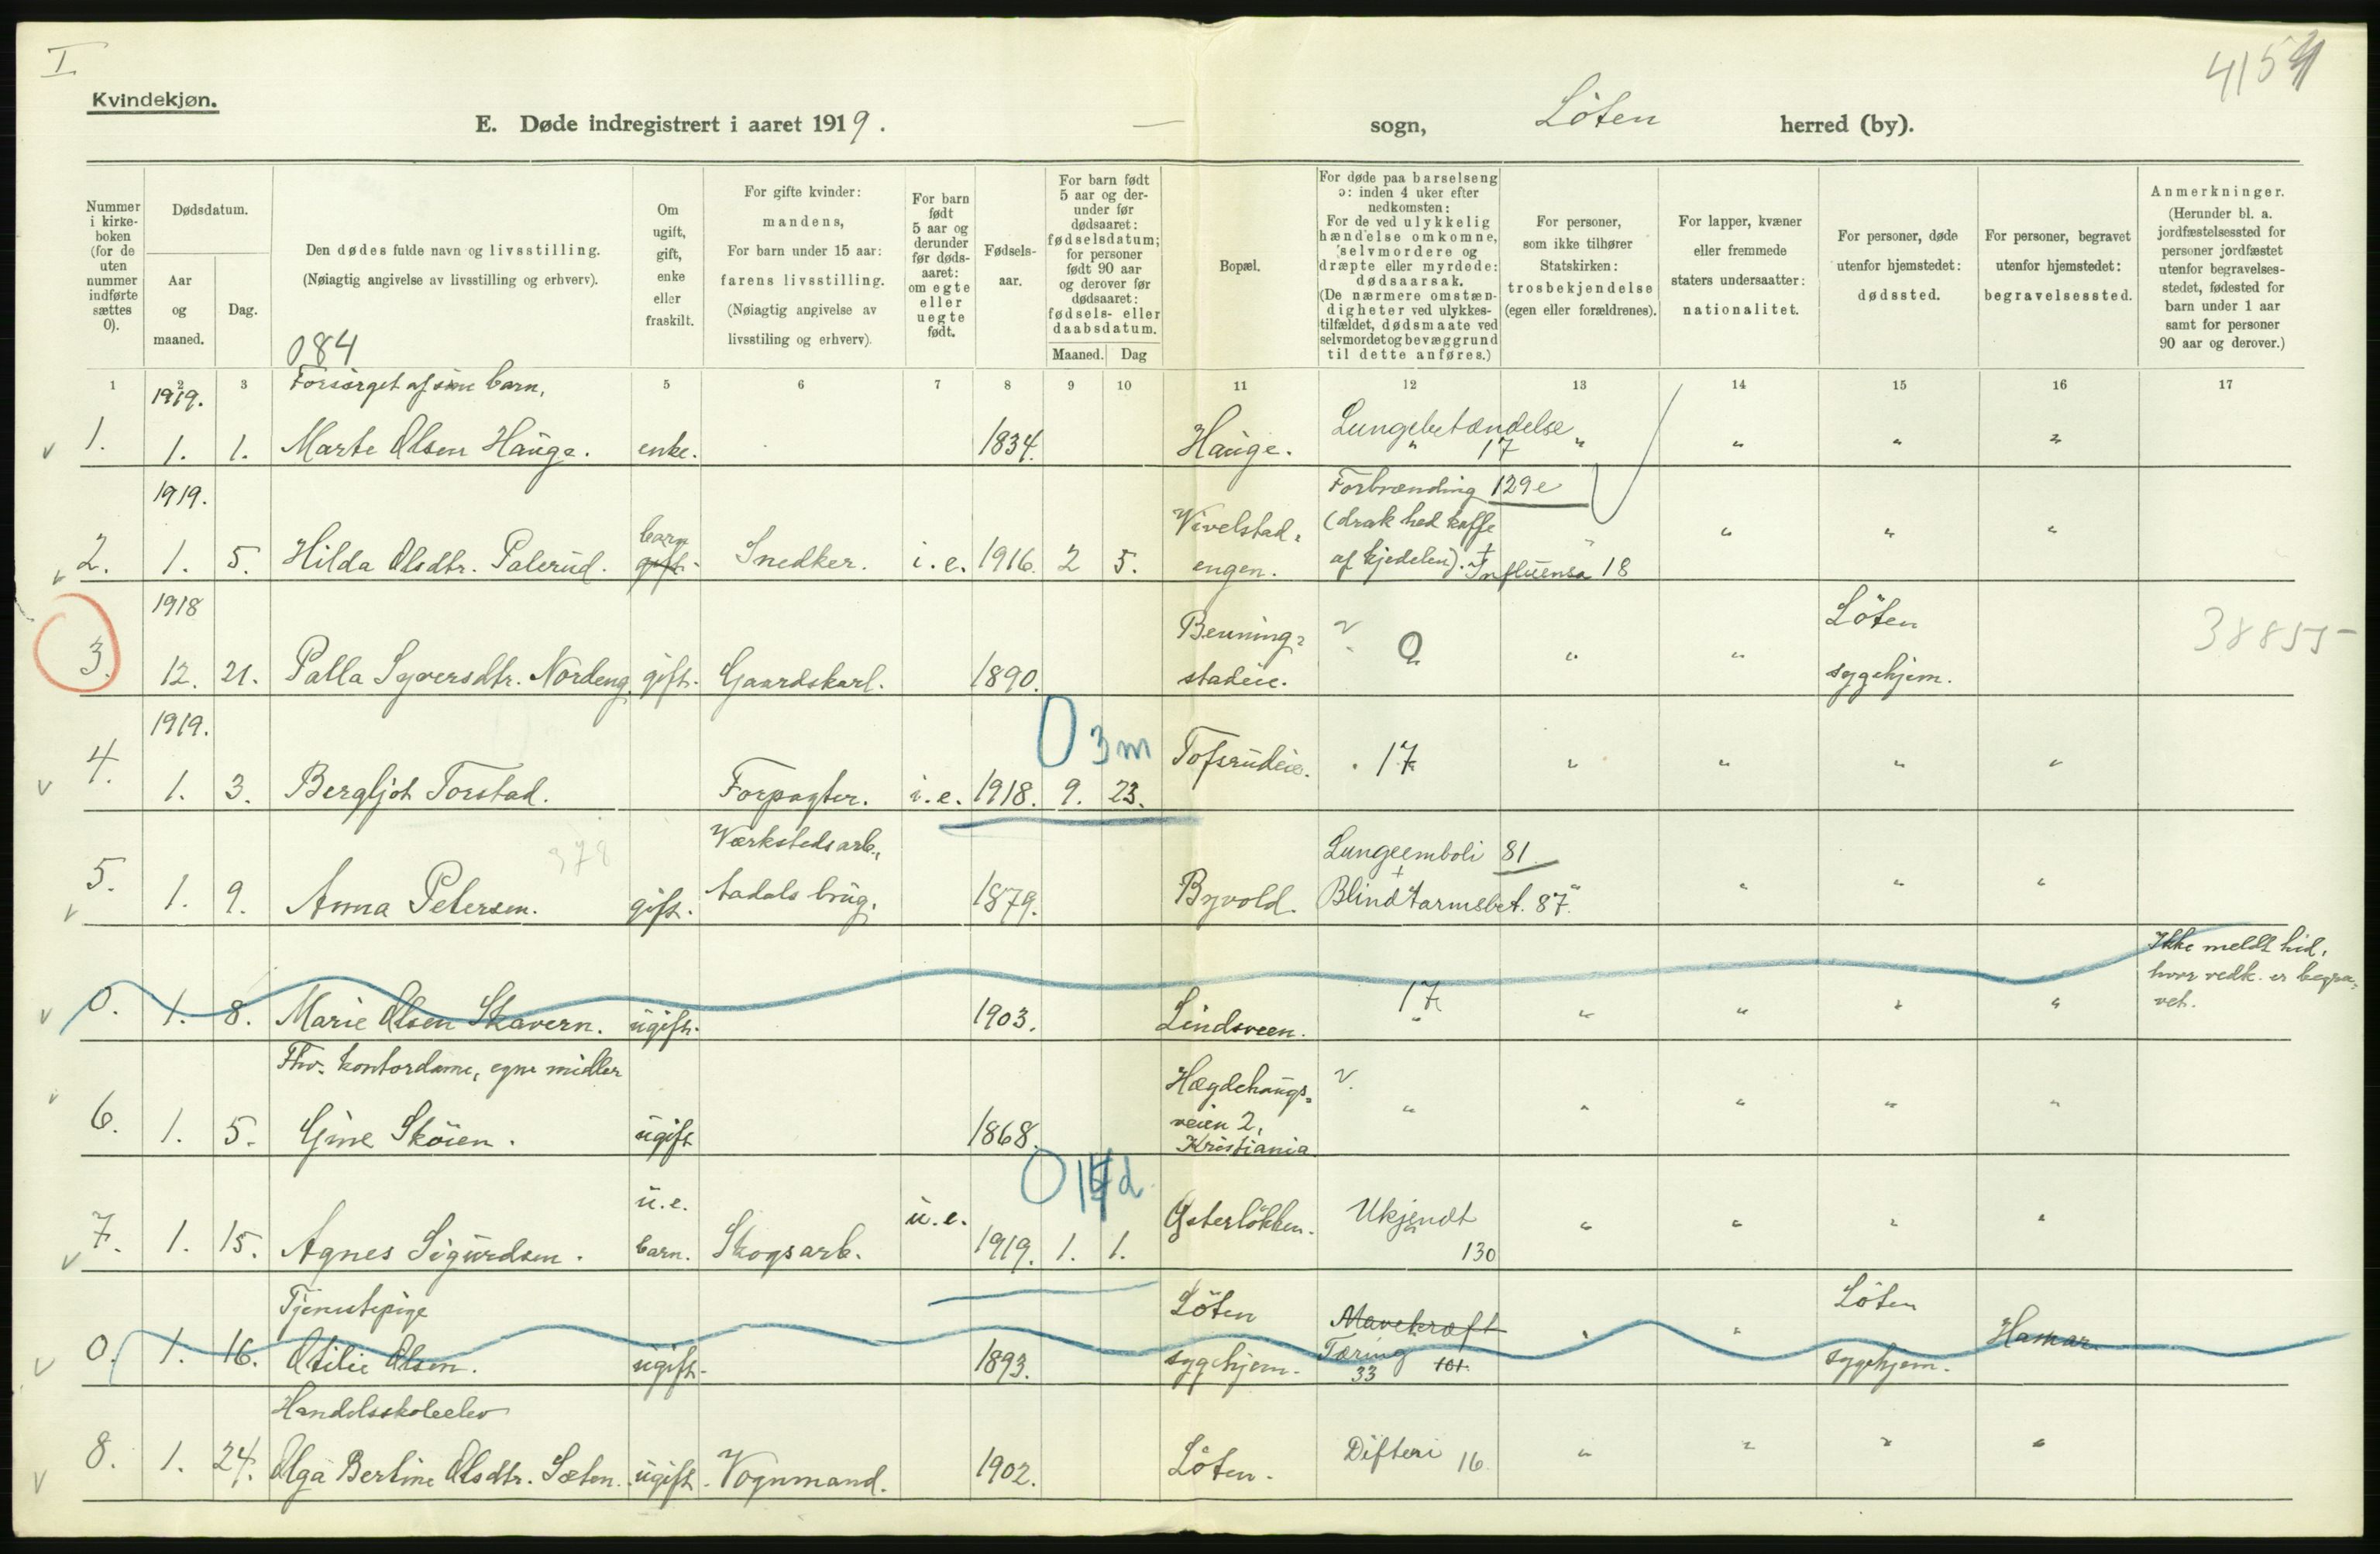 I
4154
Kvindekjøn.
E. Døde indregistrert i aaret 1919. — sogn, Löten herred (by).
Nummer i kirkeboken (for de uten nummer indførte sættes 0).
Dødsdatum.
Aar og maaned.
Dag.
Den dødes fulde navn og livsstilling.
(Nøiagtig angivelse av livsstilling og erhverv).
Om ugift, gift, enke eller fraskilt.
For gifte kvinder: mandens,
For barn under 15 aar: farens livsstilling.
(Nøiagtig angivelse av livsstiling og erhverv).
For barn født 5 aar og derunder før dødsaaret: om egte eller uegte født.
Fødselsaar.
For barn født 5 aar og derunder før dødsaaret: fødselsdatum; for personer født 90 aar og derover før dødsaaret: fødsels- eller daabsdatum.
Maaned. Dag
Bopæl.
For døde paa barselseng ɔ: inden 4 uker efter nedkomsten:
For de ved ulykkelig hændelse omkomne, selvmordere og dræpte eller myrdede: dødsaarsak.
(De nærmere omstændigheter ved ulykkestilfældet, dødsmaate ved selvmordet og bevæggrund til dette anføres.)
For personer, som ikke tilhører Statskirken: trosbekjendelse (egen eller forældrenes).
For lapper, kvæner eller fremmede staters undersaatter: nationalitet.
For personer, døde utenfor hjemstedet: dødssted.
For personer, begravet utenfor hjemstedet: begravelsessted.
Anmerkninger.
(Herunder bl. a. jordfæstelsessted for personer jordfæstet utenfor begravelsesstedet, fødested for barn under 1 aar samt for personer 90 aar og derover.)
084
1 2 3 5 6 7 8 9 10 11 12 13 14 15 16 17
1919. Forsörget af sine barn,
1. 1. 1. Marte Olsen Hauge. enke. 1834. Hauge. Lungebetændelse 17 " " " " "
1919.
2. 1. 5. Hilda Olsdtr. Palerud. barn gift. Snedker. i. e. 1916. 2 5. Vivelstadengen. Forbrænding 129e (drak hed kaffe af kjedelen). + Influensa 18 " " " "
1918
3. 12. 21. Palla Syversdtr. Nordeng. gift. Gaardskarl. 1890. Benningstadeie. 0 " " Löten sygehjem. 38855
1919.
4. 1. 3. Bergljot Torstad. Forpagter. i. e. 1918. 9. 23. 0 3 m Tofsrudeie. 17 " " " "
378
5. 1. 9. Anna Petersen. gift. Værkstedsarb., tadals brug. 1879. Byvold. Lungeemboli 81 + Blindtarmsbet. 87. " " " "
0. 1. 8. Marie Olsen Skavern. ugift. 1903. Lindsveen. 17 " " " " " Ikke meldt hid, hvor vedk. er begravet.
Fhv. kontordame, egne midler
6. 1. 5. Gine Sköien. ugift 1868. Hægdehaugsveien 2, Kristiania " " " " "
7. 1. 15. Agnes Sigurdsen. u. e. barn. Skogsarb. u. e. 1919. 1. 1. 0 14 d Østerlökken. Ukjendt 130 " " " "
Tjenestepige
0. 1. 16. Otilie Olsen. ugift. 1893. Löten sygehjem. Mavekræft Tæring 33 101. " " Löten sygehjem. Hamar
Handelsskoleelev
8. 1. 24. Olga Bertine Olsdtr. Sæten. ugift. Vognmand. 1902. Löten. Difteri 16 " " " "